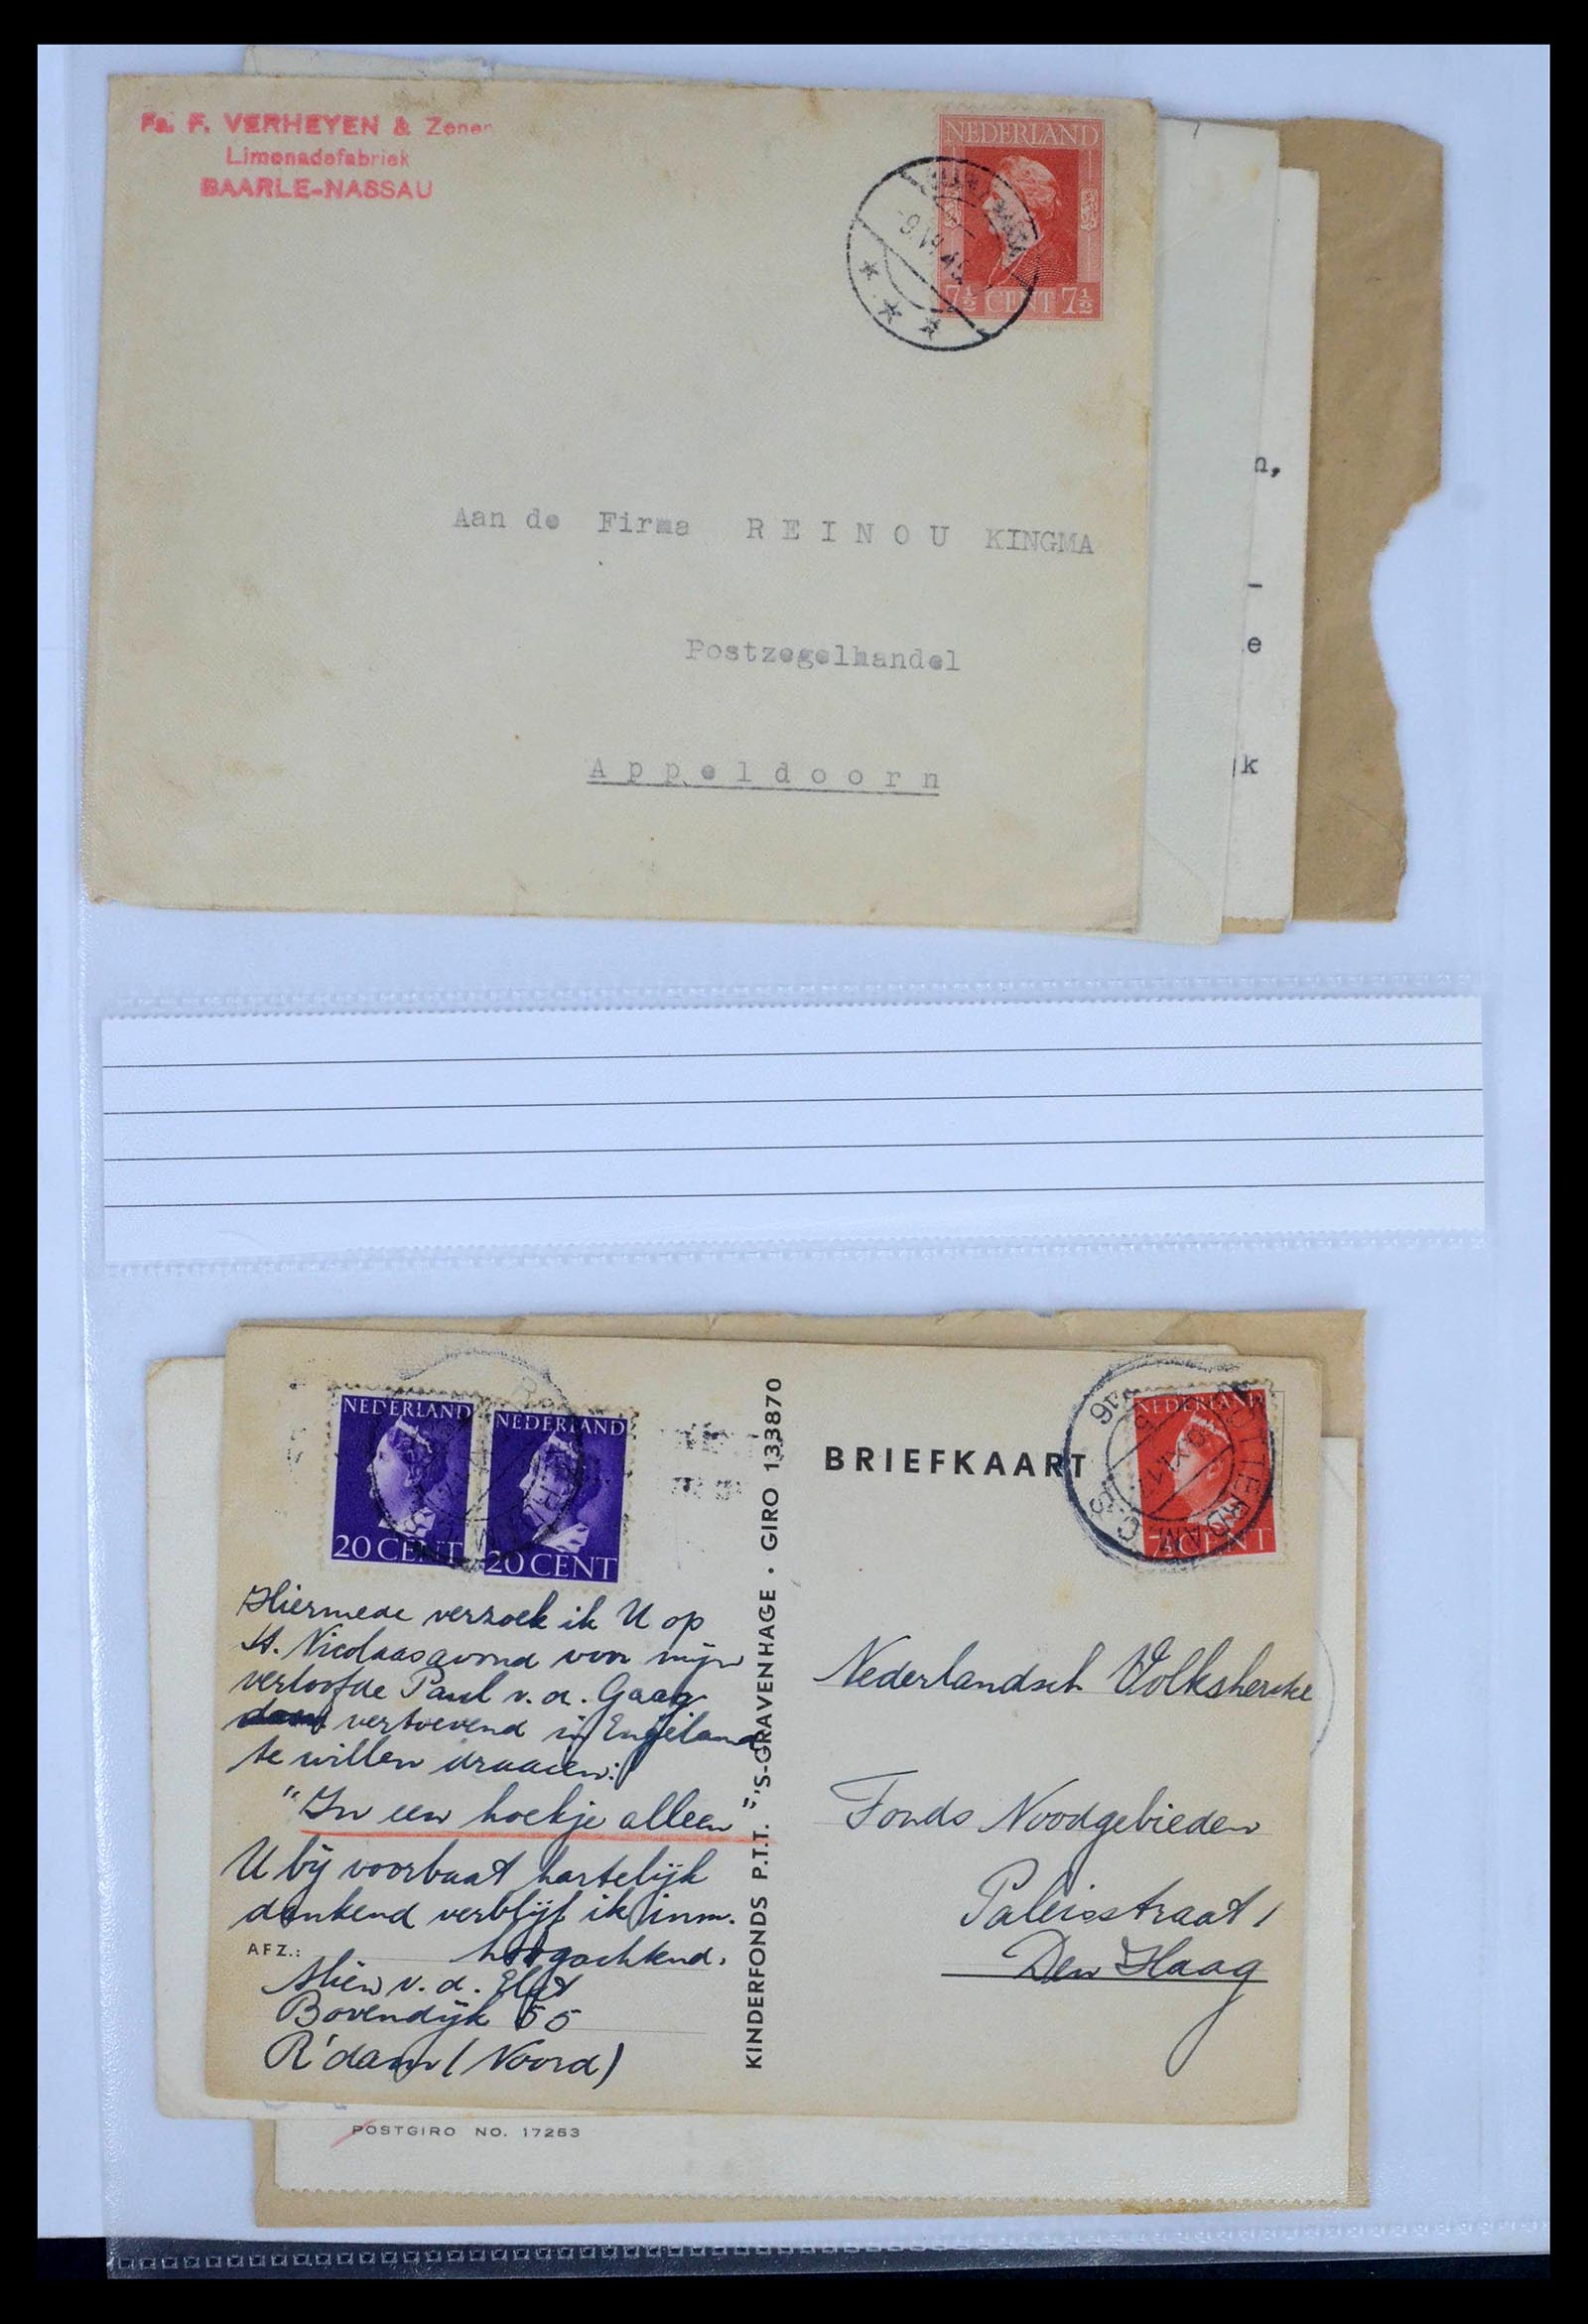 Fa. F. VERHEYEN & Zonen
Limonadefabriek
BAARLE-NASSAU
NEDERLAND
7½ CENT 7½
Aan de Firma R E I N O U KINGMA
Postzegelhandel
A p p e l d o o r n
n,
-
e
k
NEDERLAND
20 CENT
NEDERLAND
20 CENT
Hiermede verzoek ik U op
St. Nicolaasavond voor mijn
verloofde Paul v. d. Gaag
vertoevend in Engeland
te willen draaien:
"In een hoekje alleen"
U bij voorbaat hartelijk
dankend verblijf ik inm.
AFZ.: hoogachtend,
Mien v. d. Elst
Bovendijk 55
R'dam (Noord)
KINDERFONDS P.T.T. "'S-GRAVENHAGE • GIRO 133870
BRIEFKAART
NEDERLAND
7½ CENT
ROTTERDAM C.S
16
Nederlandsch
Fonds Noodgebieden
Paleisstraat 1
Den Haag
POSTGIRO NO. 17263